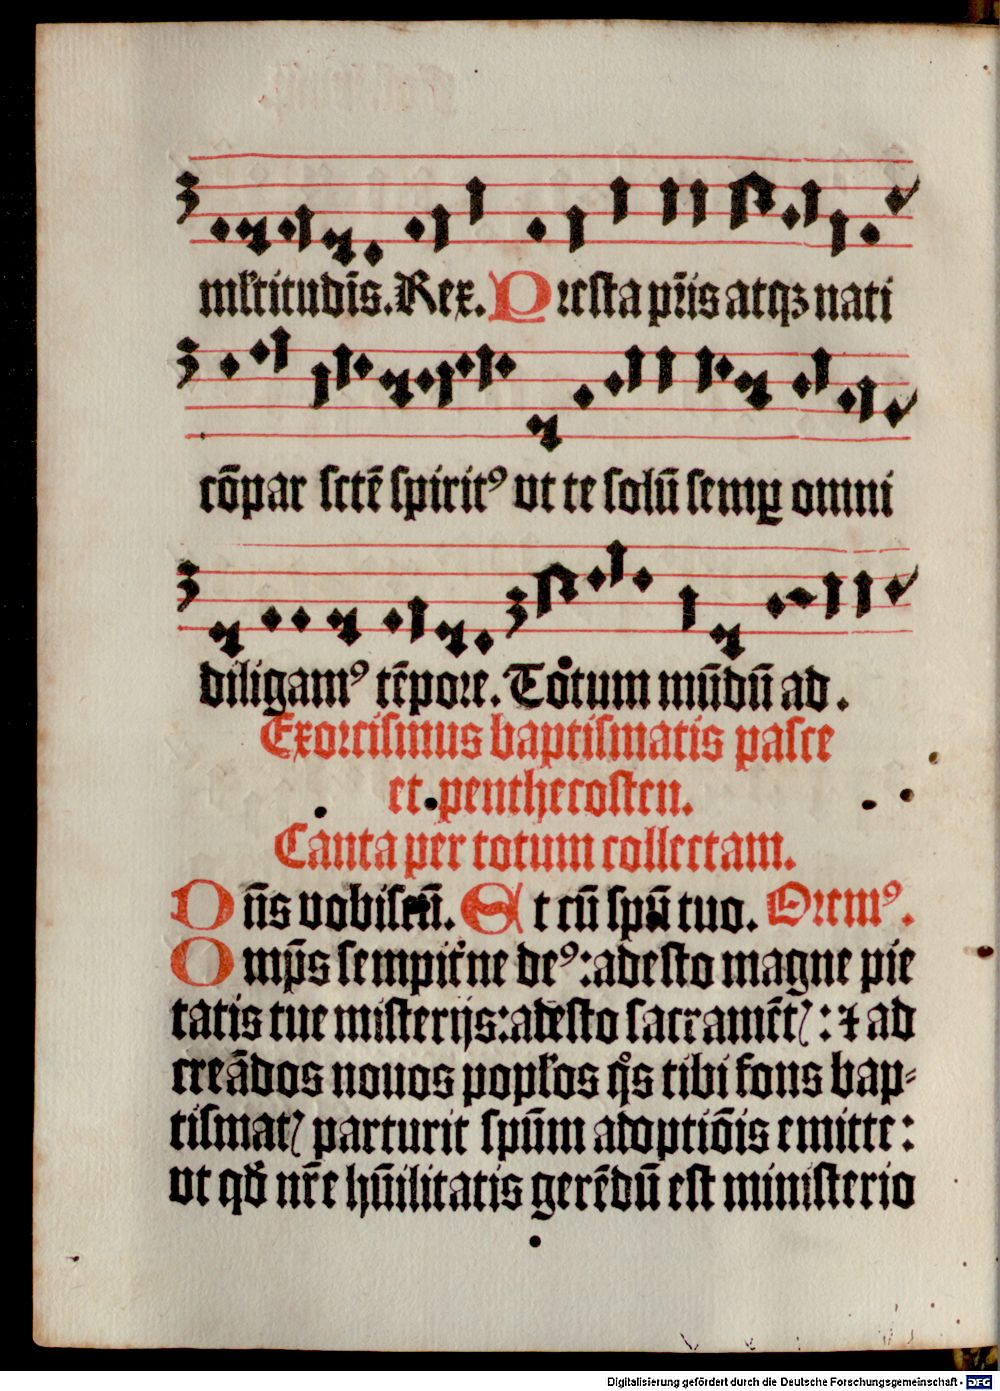 mltitudīs. Rex. Presta pr̄is atqꝫ nati
cōpar sctē spiritꝰ vt te solū semꝑ omni
diligamꝰ tēpore. Totum mūdū ad.
Exorcismus baptismatis pasce
et penthecosten.
Canta per totum collectam.
Dn̄s vobiscū. Et cū spū tuo. Oremꝰ.
Omp̄s sempit̄ne deꝰ: adesto magne pie
tatis tue misterijs: adesto sacramētꝭ: ⁊ ad
creādos nouos popl̓os q̊s tibi fons bap⸗
tismatꝭ parturit spūm adoptiōis emitte:
vt qđ nr̄e hūilitatis gerēdū est ministerio
Digitalisierung gefördert durch die Deutsche Forschungsgemeinschaft - DFG